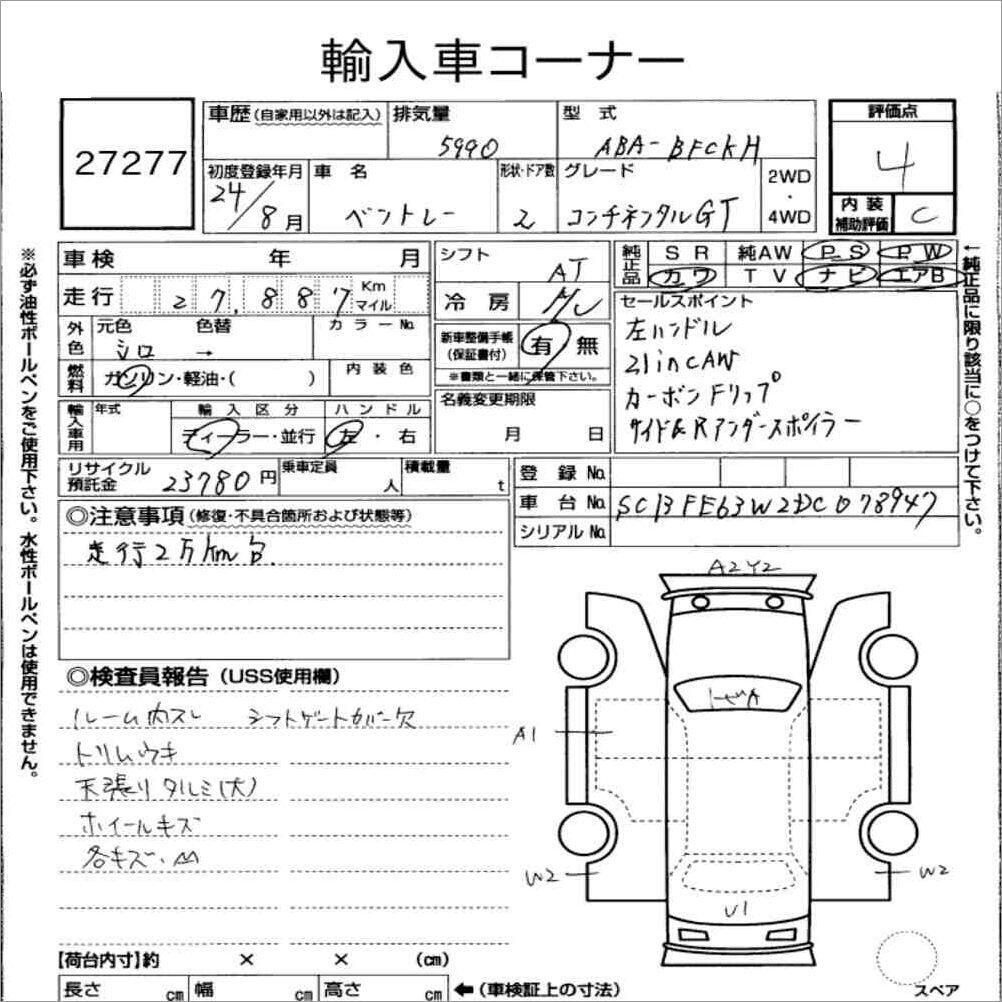 輸入車コーナー
27277
車歴 (自家用以外は記入) 排気量 5990 型式 ABA-BFCKH
評価点 4
初度登録年月 24/8月 車名 ベントレー 形状・ドア数 2 グレード コンチネンタルGT 2WD・4WD
内装補助評価 C
車検 年 月
走行 27,887 Km マイル
シフト AT
冷房
純正品 SR 純AW PS PW
カワ TV ナビ エアB
セールスポイント
左ハンドル
21inCAW
カーボンFリップ
サイド&Rアンダースポイラー
外色 元色 シロ 色替 → カラーNo.
新車整備手帳 (保証書付) 有 無
※書類と一緒に保管下さい。
燃料 ガソリン・軽油・( ) 内装色
輸入車用 年式 輸入区分 ディーラー・並行 ハンドル 左・右
名義変更期限 月 日
リサイクル預託金 23780円 乗車定員 人 積載量 t
登録No.
車台No. SCBFE63W2DC078947
シリアルNo.
◎注意事項 (修復・不具合箇所および状態等)
走行2万km B.
◎検査員報告 (USS使用欄)
ルーム内スレ シフトゲートカバー欠
トリムウキ
天張りタルミ(大)
ホイールキズ
各キズ・
A2Y2
A1
W2
W2
U1
【荷台内寸】約 × × (cm)
長さ cm 幅 cm 高さ cm ←(車検証上の寸法)
スペア
※必ず油性ボールペンをご使用下さい。水性ボールペンは使用できません。
←純正品に限り該当に○をつけて下さい。